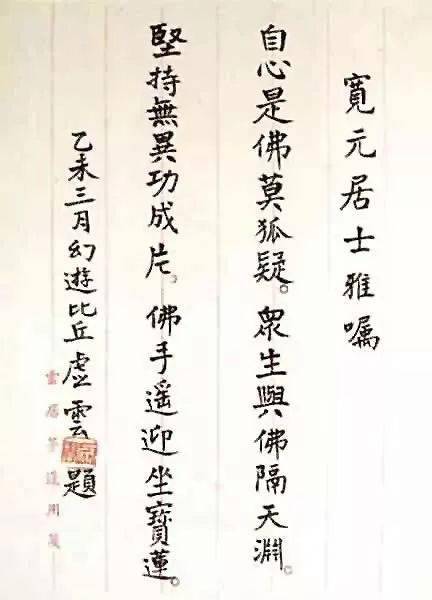 寬元居士雅嘱
自心是佛莫狐疑。眾生與佛隔天淵。
堅持無異功成片。佛手遥迎坐寶蓮。
乙未三月幻遊比丘虚雲題